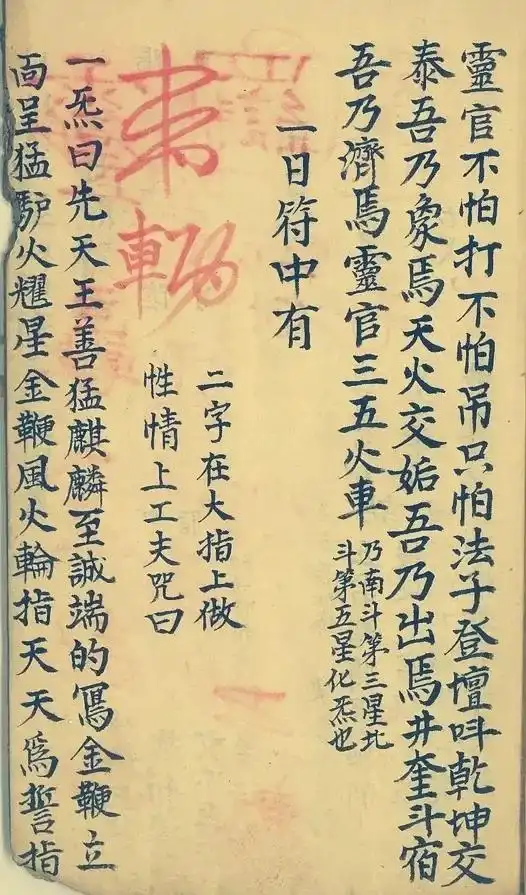 靈官不怕打不怕吊只怕法子登壇呌乾坤交
泰吾乃象焉天火交姤吾乃出焉井奎斗宿
吾乃濟焉靈官三五火車
乃南斗第三星北
斗第五星化炁也
一日符中有
二字在大指上做
性情上工夫咒曰
一炁曰先天王善猛麒麟至誠端的寫金鞭立
靣呈猛馿火耀星金鞭風火輪指天天爲誓指